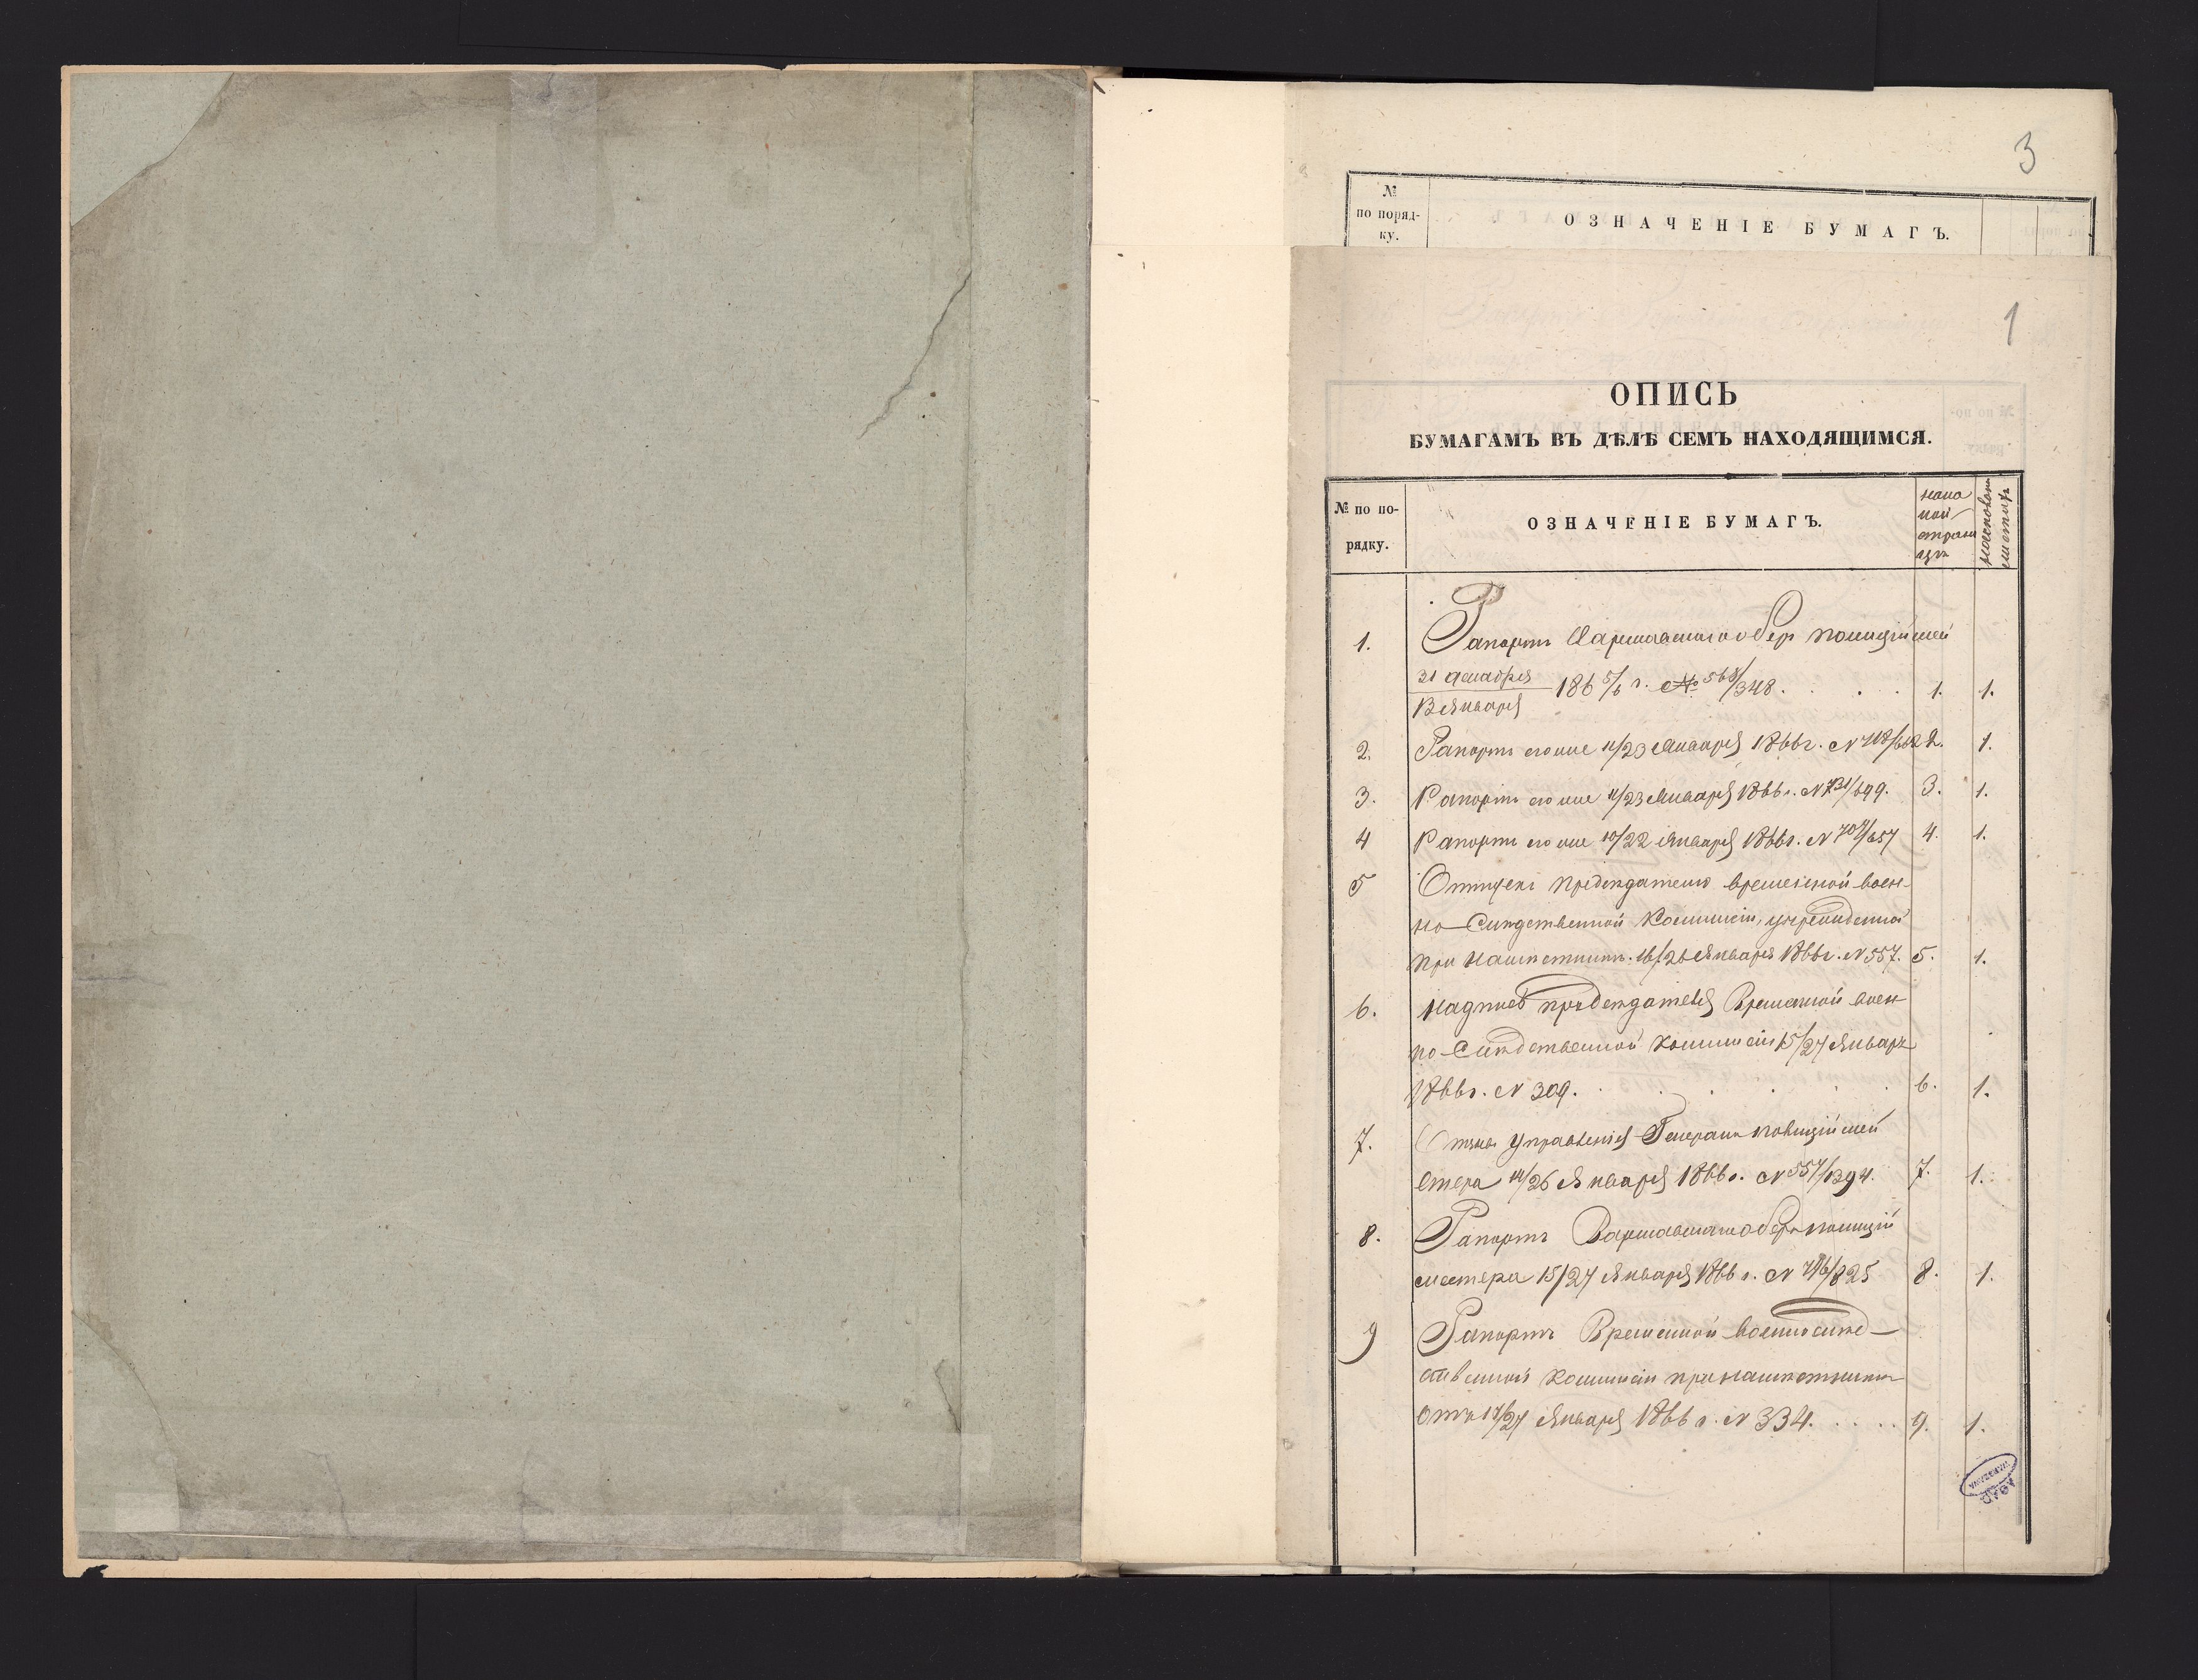 3
№
по поряд-
ку.
ОЗНАЧЕНІЕ БУМАГЪ.
1
ОПИСЬ
БУМАГАМЪ ВЪ ДѢЛѢ СЕМЪ НАХОДЯЩИМСЯ.
№ по по-
рядку.
ОЗНАЧЕНІЕ БУМАГЪ.
на ко
кой
страни
цѣ
на сколькихъ
листахъ
1. Рапортъ Варшавскаго оберъ полиціймей
31 декабря
12 Января
186 5/6 г. № 568/348. . . . 1. 1.
2. Рапортъ его же 11/23 Января 1866 г. N 718/662 2. 1.
3. Рапортъ его же 11/23 Января 1866 г. N 731/699. 3. 1.
4 Рапортъ его же 10/22 Января 1866 г. N 709/657 4. 1.
5 Отпускъ предсѣдателю временной воен-
но-Слѣдственной Коммисіи, учрежденной
при Намѣстникѣ. 16/28 Января 1866 г. N 557. 5. 1.
6. Надпись предсѣдателя Временной воен
но-Слѣдственной Коммисіи 15/27 Января
1866 г. N 309. . . . . . 6. 1.
7. Отзывъ Управленія Генералъ полиціймей
стера 14/26 Января 1866 г. N 557/1394. 7. 1.
8. Рапортъ Варшавскаго оберъ полиций
мейстера 15/27 Января 1866 г. N 796/825 8. 1.
9 Рапортъ Временной военнослѣд-
ственной Коммисіи при намѣстникѣ
отъ 17/27 Января 1866 г. N 334. . . . . 9. 1.
AGAD
WARSZAWA